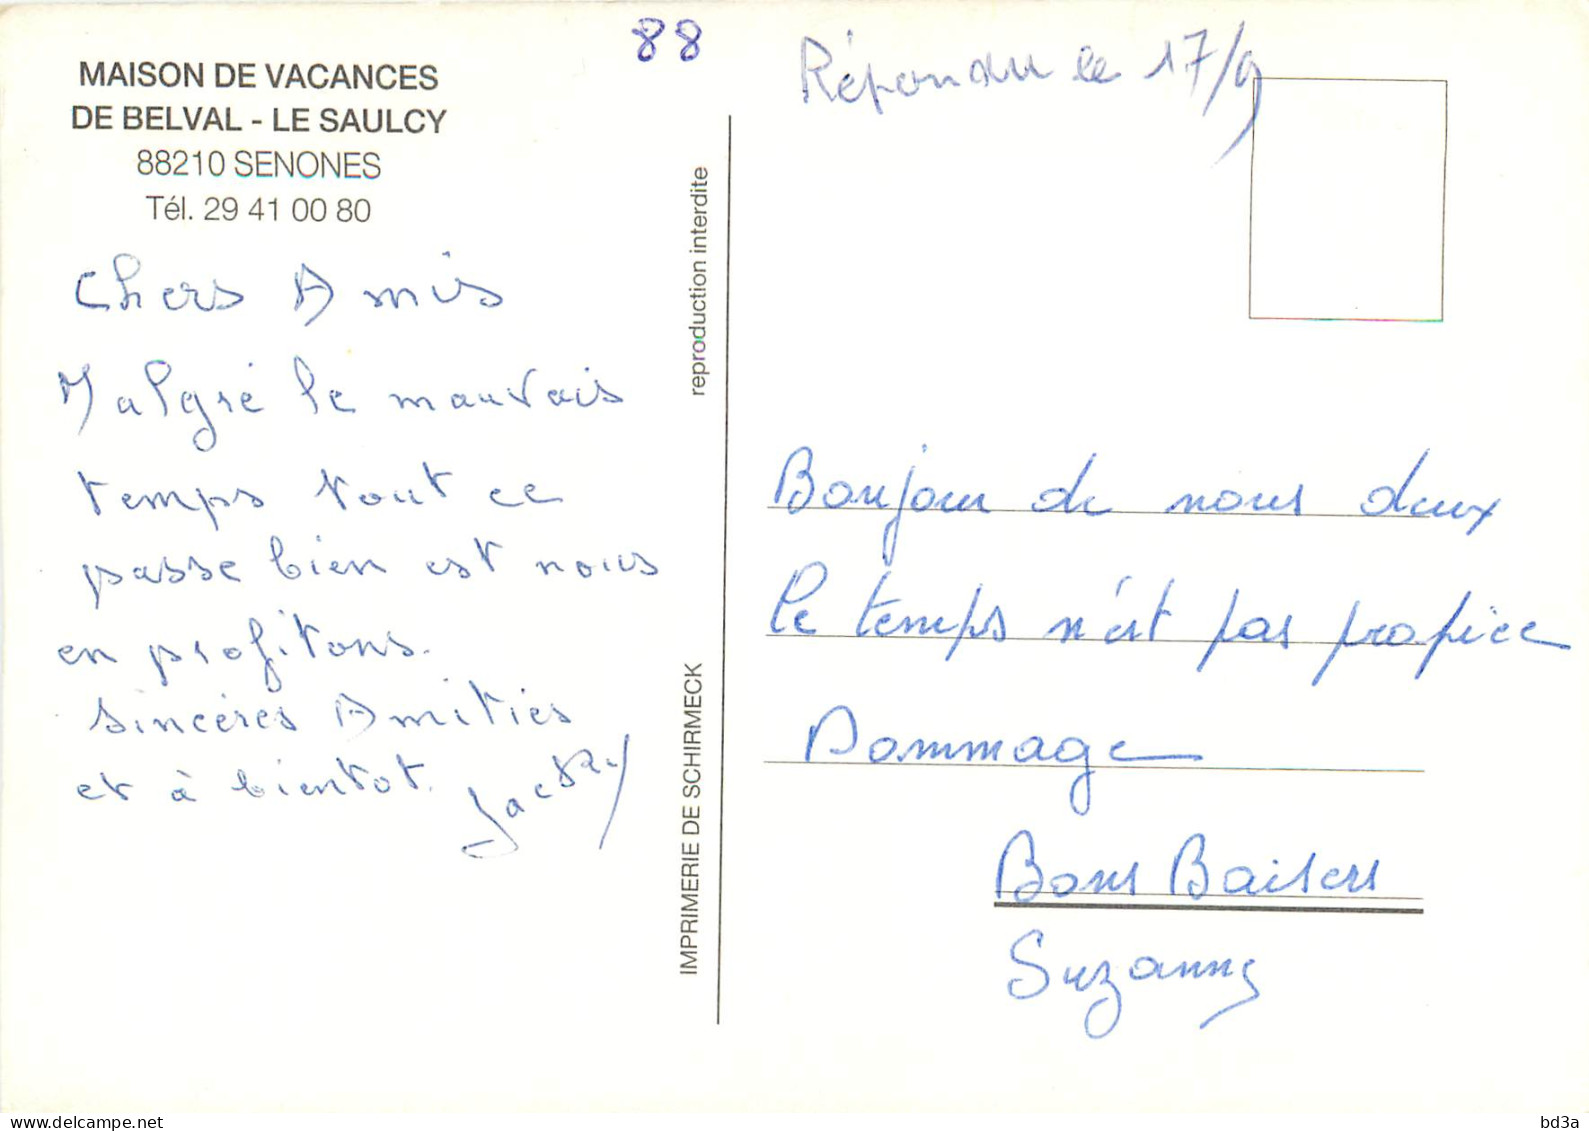 88
MAISON DE VACANCES
DE BELVAL - LE SAULCY
88210 SENONES
Tél. 29 41 00 80
Chers Amis
Malgré le mauvais
temps tout ce
passe bien est nous
en profitons.
sincéres Amitiés
et à bientot.
reproduction interdite
IMPRIMERIE DE SCHIRMECK
Répondu le 17/9
Bonjour de nous deux
le temps n'est pas propice
Dommage
Bons Baisers
Suzanne
delcampe.net
bd3a